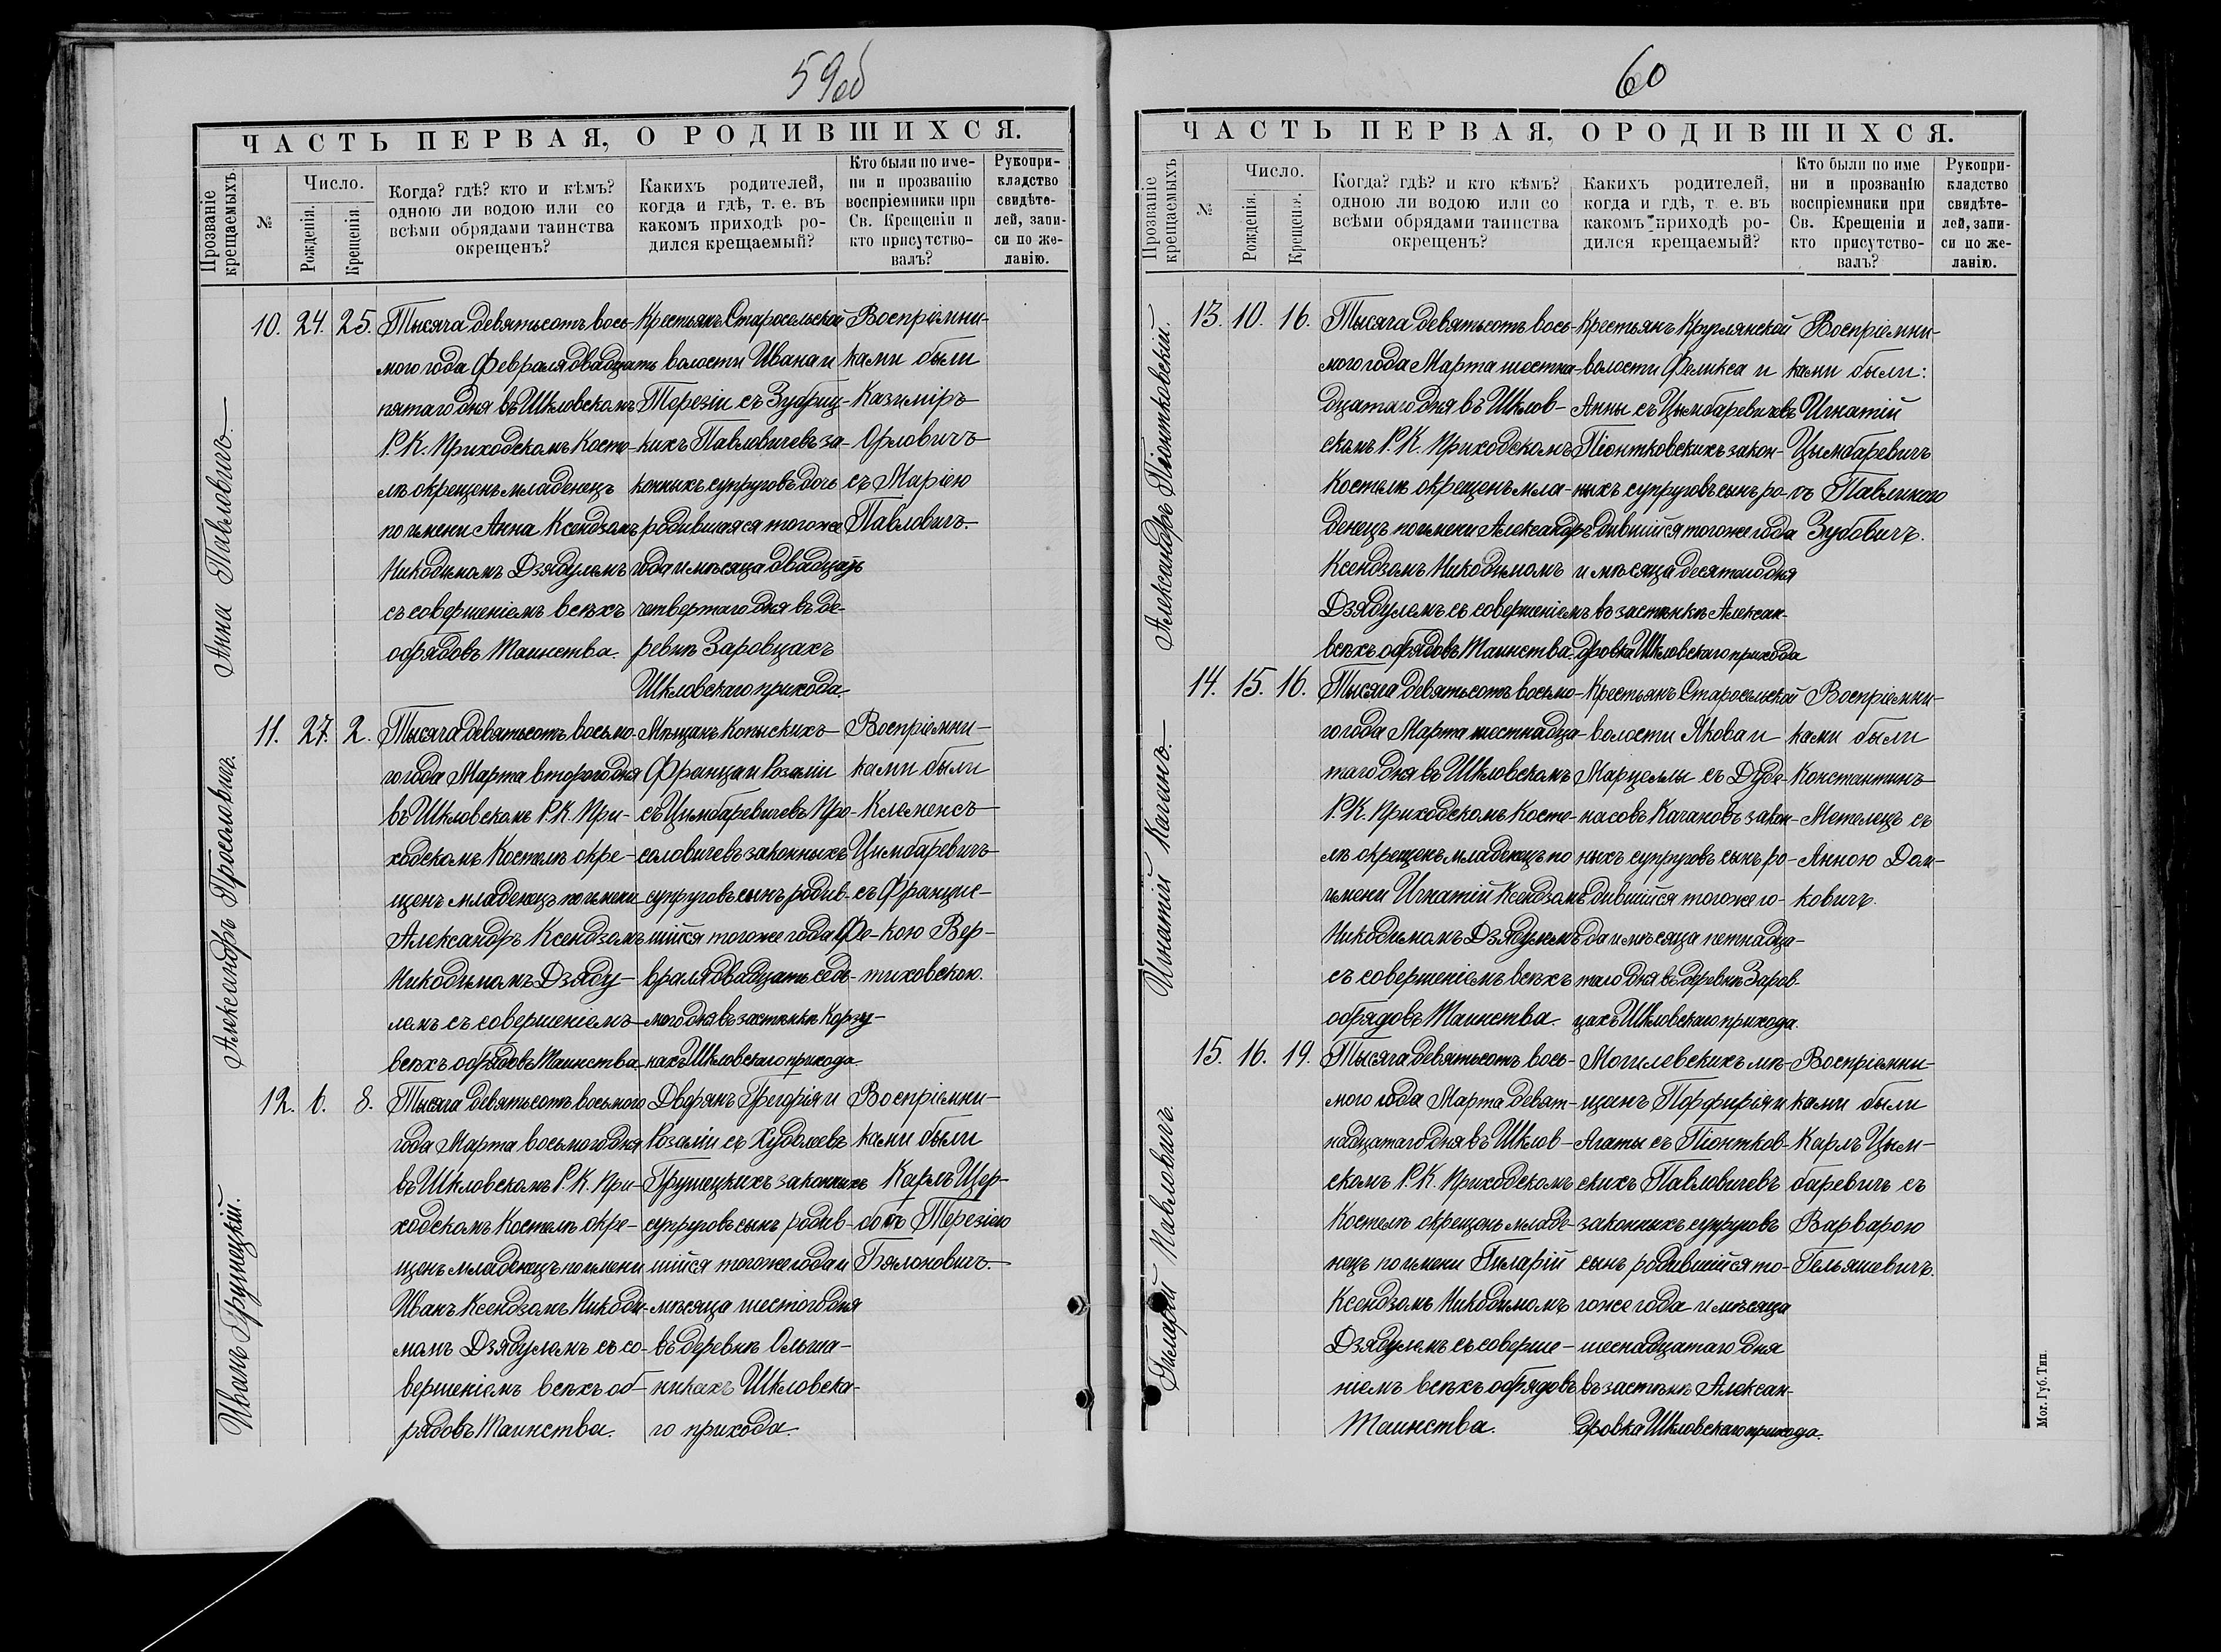 59об
ЧАСТЬ ПЕРВАЯ, О РОДИВШИХСЯ.
Прозваніе крещаемыхъ.
№
Число.
Рожденія.
Крещенія
Когда? гдѣ? кто и кѣмъ?
одною ли водою или со
всѣми обрядами таинства
окрещенъ?
Какихъ родителей,
когда и гдѣ, т. е. въ
какомъ приходѣ ро-
дился крещаемый?
Кто были по име-
ни и прозванію
воспріемники при
Св. Крещеніи и
кто присутство-
валъ?
Рукопри-
кладство
свидѣте-
лей, запи-
си по же-
ланію.
Анна Павловичъ.
10. 24. 25.
Тысяча девятьсотъ вось-
мого года Февраля двадцать
пятаго дня въ Шкловскомъ
Р. К. Приходскомъ Косте-
лѣ окрещенъ младенецъ
по имени Анна Ксендзомъ
Никодимомъ Дзядулемъ
съ совершеніемъ всѣхъ
обрядовъ Таинства.
Крестьянъ Старосельской
волости Ивана и
Терезіи съ Зубриц-
кихъ Павловичевъ за-
конныхъ супруговъ дочь
родившаяся тогоже
года и мѣсяца двадцать
четвертаго дня въ де-
ревнѣ Заровцахъ
Шкловскаго прихода.
Воспріемни-
ками были
Казиміръ
Орловичъ
съ Маріею
Павловичъ.
Александръ Просоловичъ.
11. 27. 2.
Тысяча девятьсотъ восьмо-
го года Марта второго дня
въ Шкловскомъ Р. К. При-
ходскомъ Костелѣ окре-
щенъ младенецъ по имени
Александръ Ксендзомъ
Никодимомъ Дзяду-
лемъ съ совершеніемъ
всѣхъ обрядовъ Таинства
Мѣщанъ Копыскихъ
Франца и Розаліи
съ Цимбаревичевъ Про-
соловичевъ законныхъ
супруговъ сынъ родив-
шійся тогоже года Фе-
враля двадцать седь-
мого дня въ застѣнкѣ Корзу-
нахъ Шкловскаго прихода.
Воспріемни-
ками были
Клеменсъ
Цимбаревичъ
съ Францис-
кою Вер-
тиховскою.
Иванъ Грушецкій.
12. 6. 8.
Тысяча девятьсотъ восьмого
года Марта восьмого дня
въ Шкловскомъ Р. К. При-
ходскомъ Костелѣ окре-
щенъ младенецъ по имени
Иванъ Ксендзомъ Никоди-
момъ Дзядулемъ съ со-
вершеніемъ всѣхъ об-
рядовъ Таинства.
Дворянъ Грегорія и
Розаліи съ Худолеевъ
Грушецкихъ законныхъ
супруговъ сынъ родив-
шійся тогоже года и
мѣсяца шестого дня
въ деревнѣ Ольша-
никахъ Шкловска-
го прихода.
Воспріемни-
ками были
Карлъ Щер-
бо съ Терезіею
Бялоновичъ.
60
ЧАСТЬ ПЕРВАЯ, О РОДИВШИХСЯ.
Прозваніе крещаемыхъ
№
Число.
Рожденія.
Крещенія.
Когда? гдѣ? и кто кѣмъ?
одною ли водою или со
всѣми обрядами таинства
окрещенъ?
Какихъ родителей,
когда и гдѣ, т. е. въ
какомъ приходѣ ро-
дился крещаемый?
Кто были по име
ни и прозванію
воспріемники при
Св. Крещеніи и
кто присутство-
валъ?
Рукопри-
кладство
свидѣте-
лей, запи-
си по же-
ланію.
Александръ Піонтковскій.
13. 10. 16.
Тысяча девятьсотъ вось-
мого года Марта шестна-
дцатаго дня въ Шклов-
скомъ Р. К. Приходскомъ
Костелѣ окрещенъ мла-
денецъ по имени Александръ
Ксендзомъ Никодимомъ
Дзядулемъ съ совершеніемъ
всѣхъ обрядовъ Таинства
Крестьянъ Круглянской
волости Феликса и
Анны съ Цымбаревичевъ
Піонтковскихъ закон-
ныхъ супруговъ сынъ ро-
дившійся тогоже года
и мѣсяца десятого дня
въ застѣнкѣ Алексан-
дровка Шкловскаго прихода
Воспріемни-
ками были:
Игнатій
Цымбаревичъ
съ Павлиною
Зубовичъ.
Игнатій Качанъ.
14. 15. 16.
Тысяча девятьсотъ восьмо-
го года Марта шестнадца-
таго дня въ Шкловскомъ
Р. К. Приходскомъ Косте-
лѣ окрещенъ младенецъ по
имени Игнатій Ксендзомъ
Никодимомъ Дзядулемъ
съ совершеніемъ всѣхъ
обрядовъ Таинства.
Крестьянъ Старосельской
волости Якова и
Марцеллы съ Дуде-
насовъ Качановъ закон-
ныхъ супруговъ сынъ ро-
дившійся тогоже го-
да и мѣсяца петнадца-
таго дня въ деревнѣ Заров-
цахъ Шкловскаго прихода.
Воспріемни-
ками были
Константинъ
Метелецъ съ
Анною Дом-
ковичъ.
Гиларій Павловичъ.
15. 16. 19.
Тысяча девятьсотъ вось-
мого года Марта девят-
надцатаго дня въ Шклов-
скомъ Р. К. Приходскомъ
Костелѣ окрещенъ младе-
нецъ по имени Гиларій
Ксендзомъ Никодимомъ
Дзядулемъ съ соверше-
ніемъ всѣхъ обрядовъ
Таинства.
Могилевскихъ мѣ-
щанъ Порфирія и
Агаты съ Піонтков-
скихъ Павловичевъ
законныхъ супруговъ
сынъ родившійся то-
гоже года и мѣсяца
шеснадцатаго дня
въ застѣнкѣ Алексан-
дровка Шкловскаго прихода.
Воспріемни-
ками были
Карлъ Цым-
баревичъ съ
Варварою
Гельяшевичъ.
Мог. Губ. Тип.